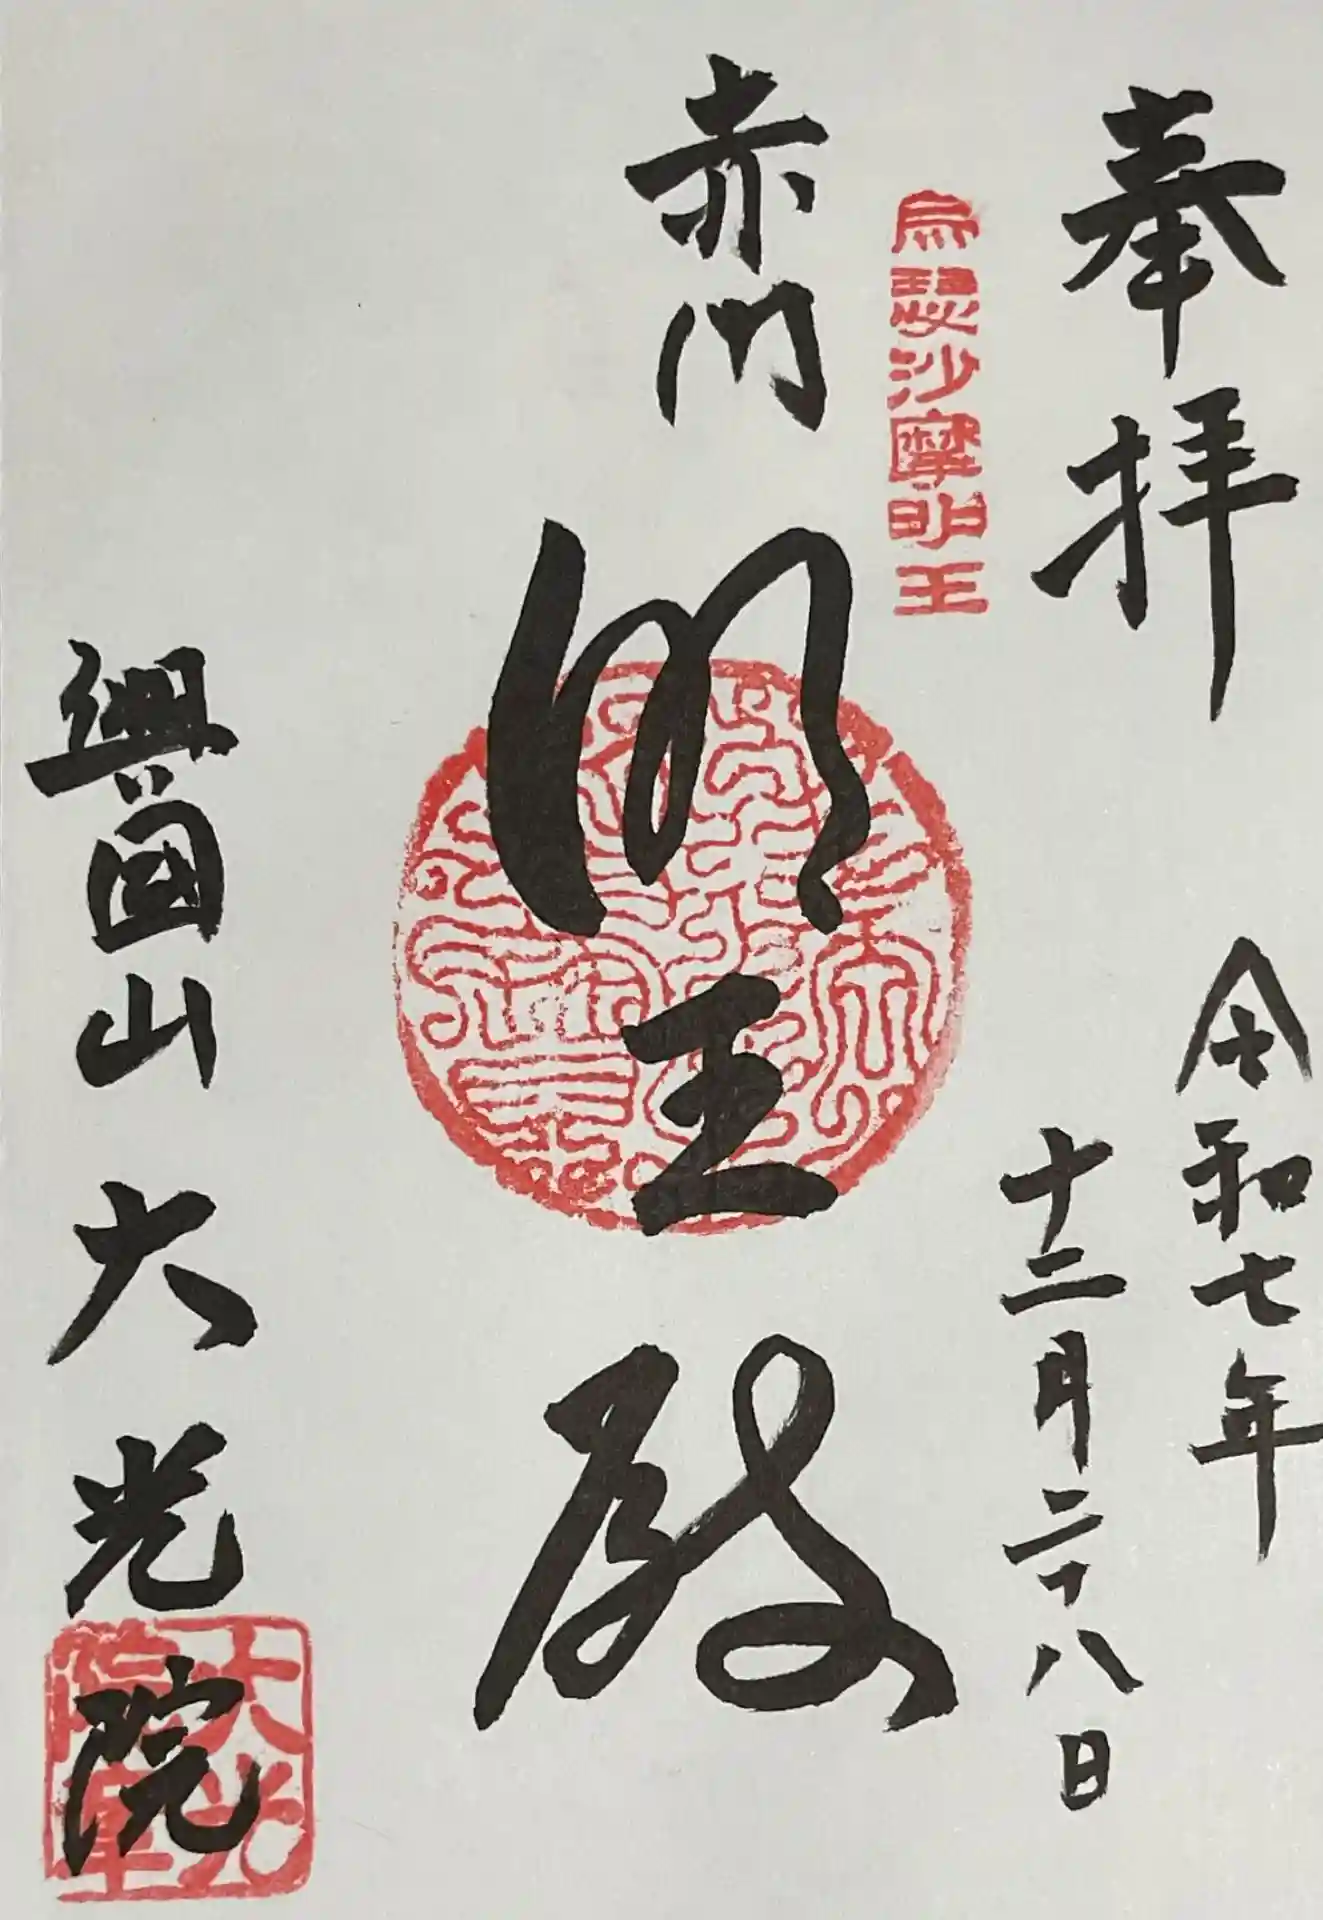 奉拝
令和七年
十二月二十八日
烏瑟沙摩明王
赤門
明王殿
興國山大光院
大光
院章